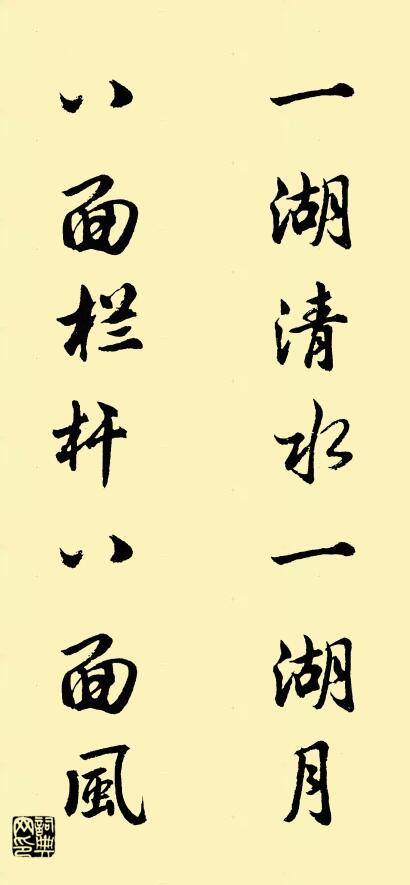 一湖清水一湖月
八面栏杆八面風
詞典网印